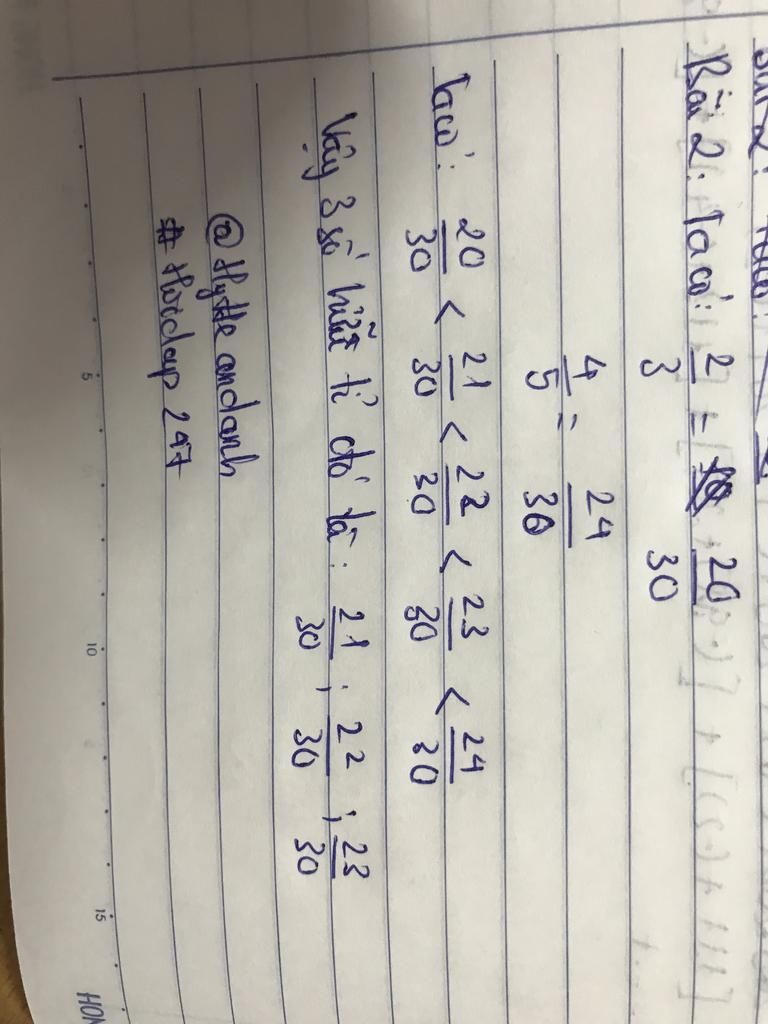 Bài 2: Ta có: 2/3 = 20/30
4/5 = 24/30
Ta có: 20/30 < 21/30 < 22/30 < 23/30 < 24/30
Vậy 3 số hữu tỉ đó là: 21/30 ; 22/30 ; 23/30
# Hoidap 247
5 10 15